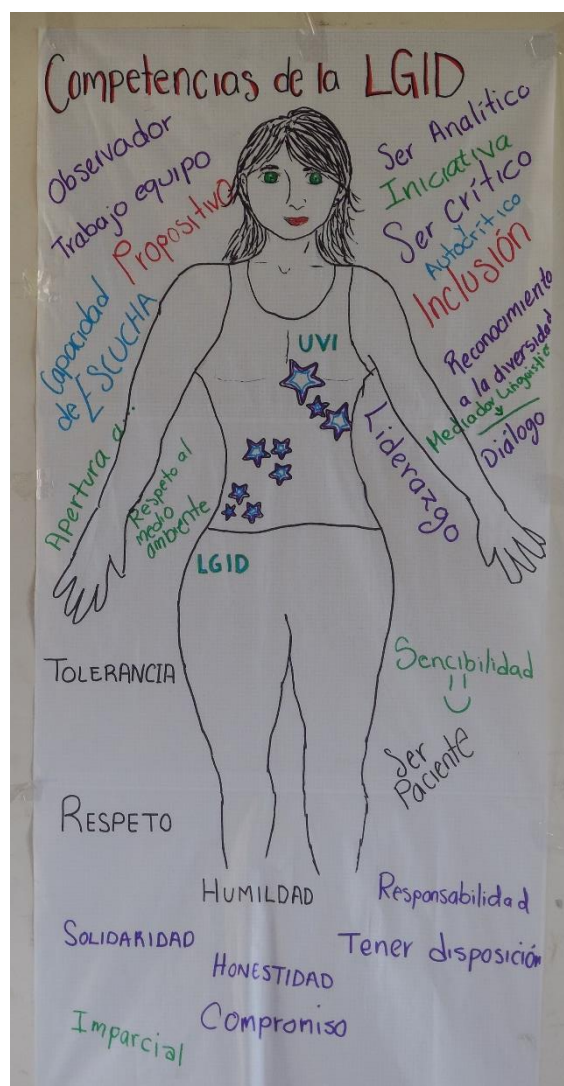 Competencias de la LGID
Observador
Trabajo equipo
Propositivo
Capacidad
de ESCUCHA
Apertura a...
Respeto al
medio
ambiente
Ser Analítico
Iniciativa
Ser Crítico
Autocrítico
Inclusión
Reconocimiento
a la diversidad
Mediador Lingüístico
Diálogo
Liderazgo
UVI
LGID
TOLERANCIA
Sencibilidad
Ser
Paciente
RESPETO
HUMILDAD
Responsabilidad
SOLIDARIDAD
Tener disposición
HONESTIDAD
Compromiso
Imparcial